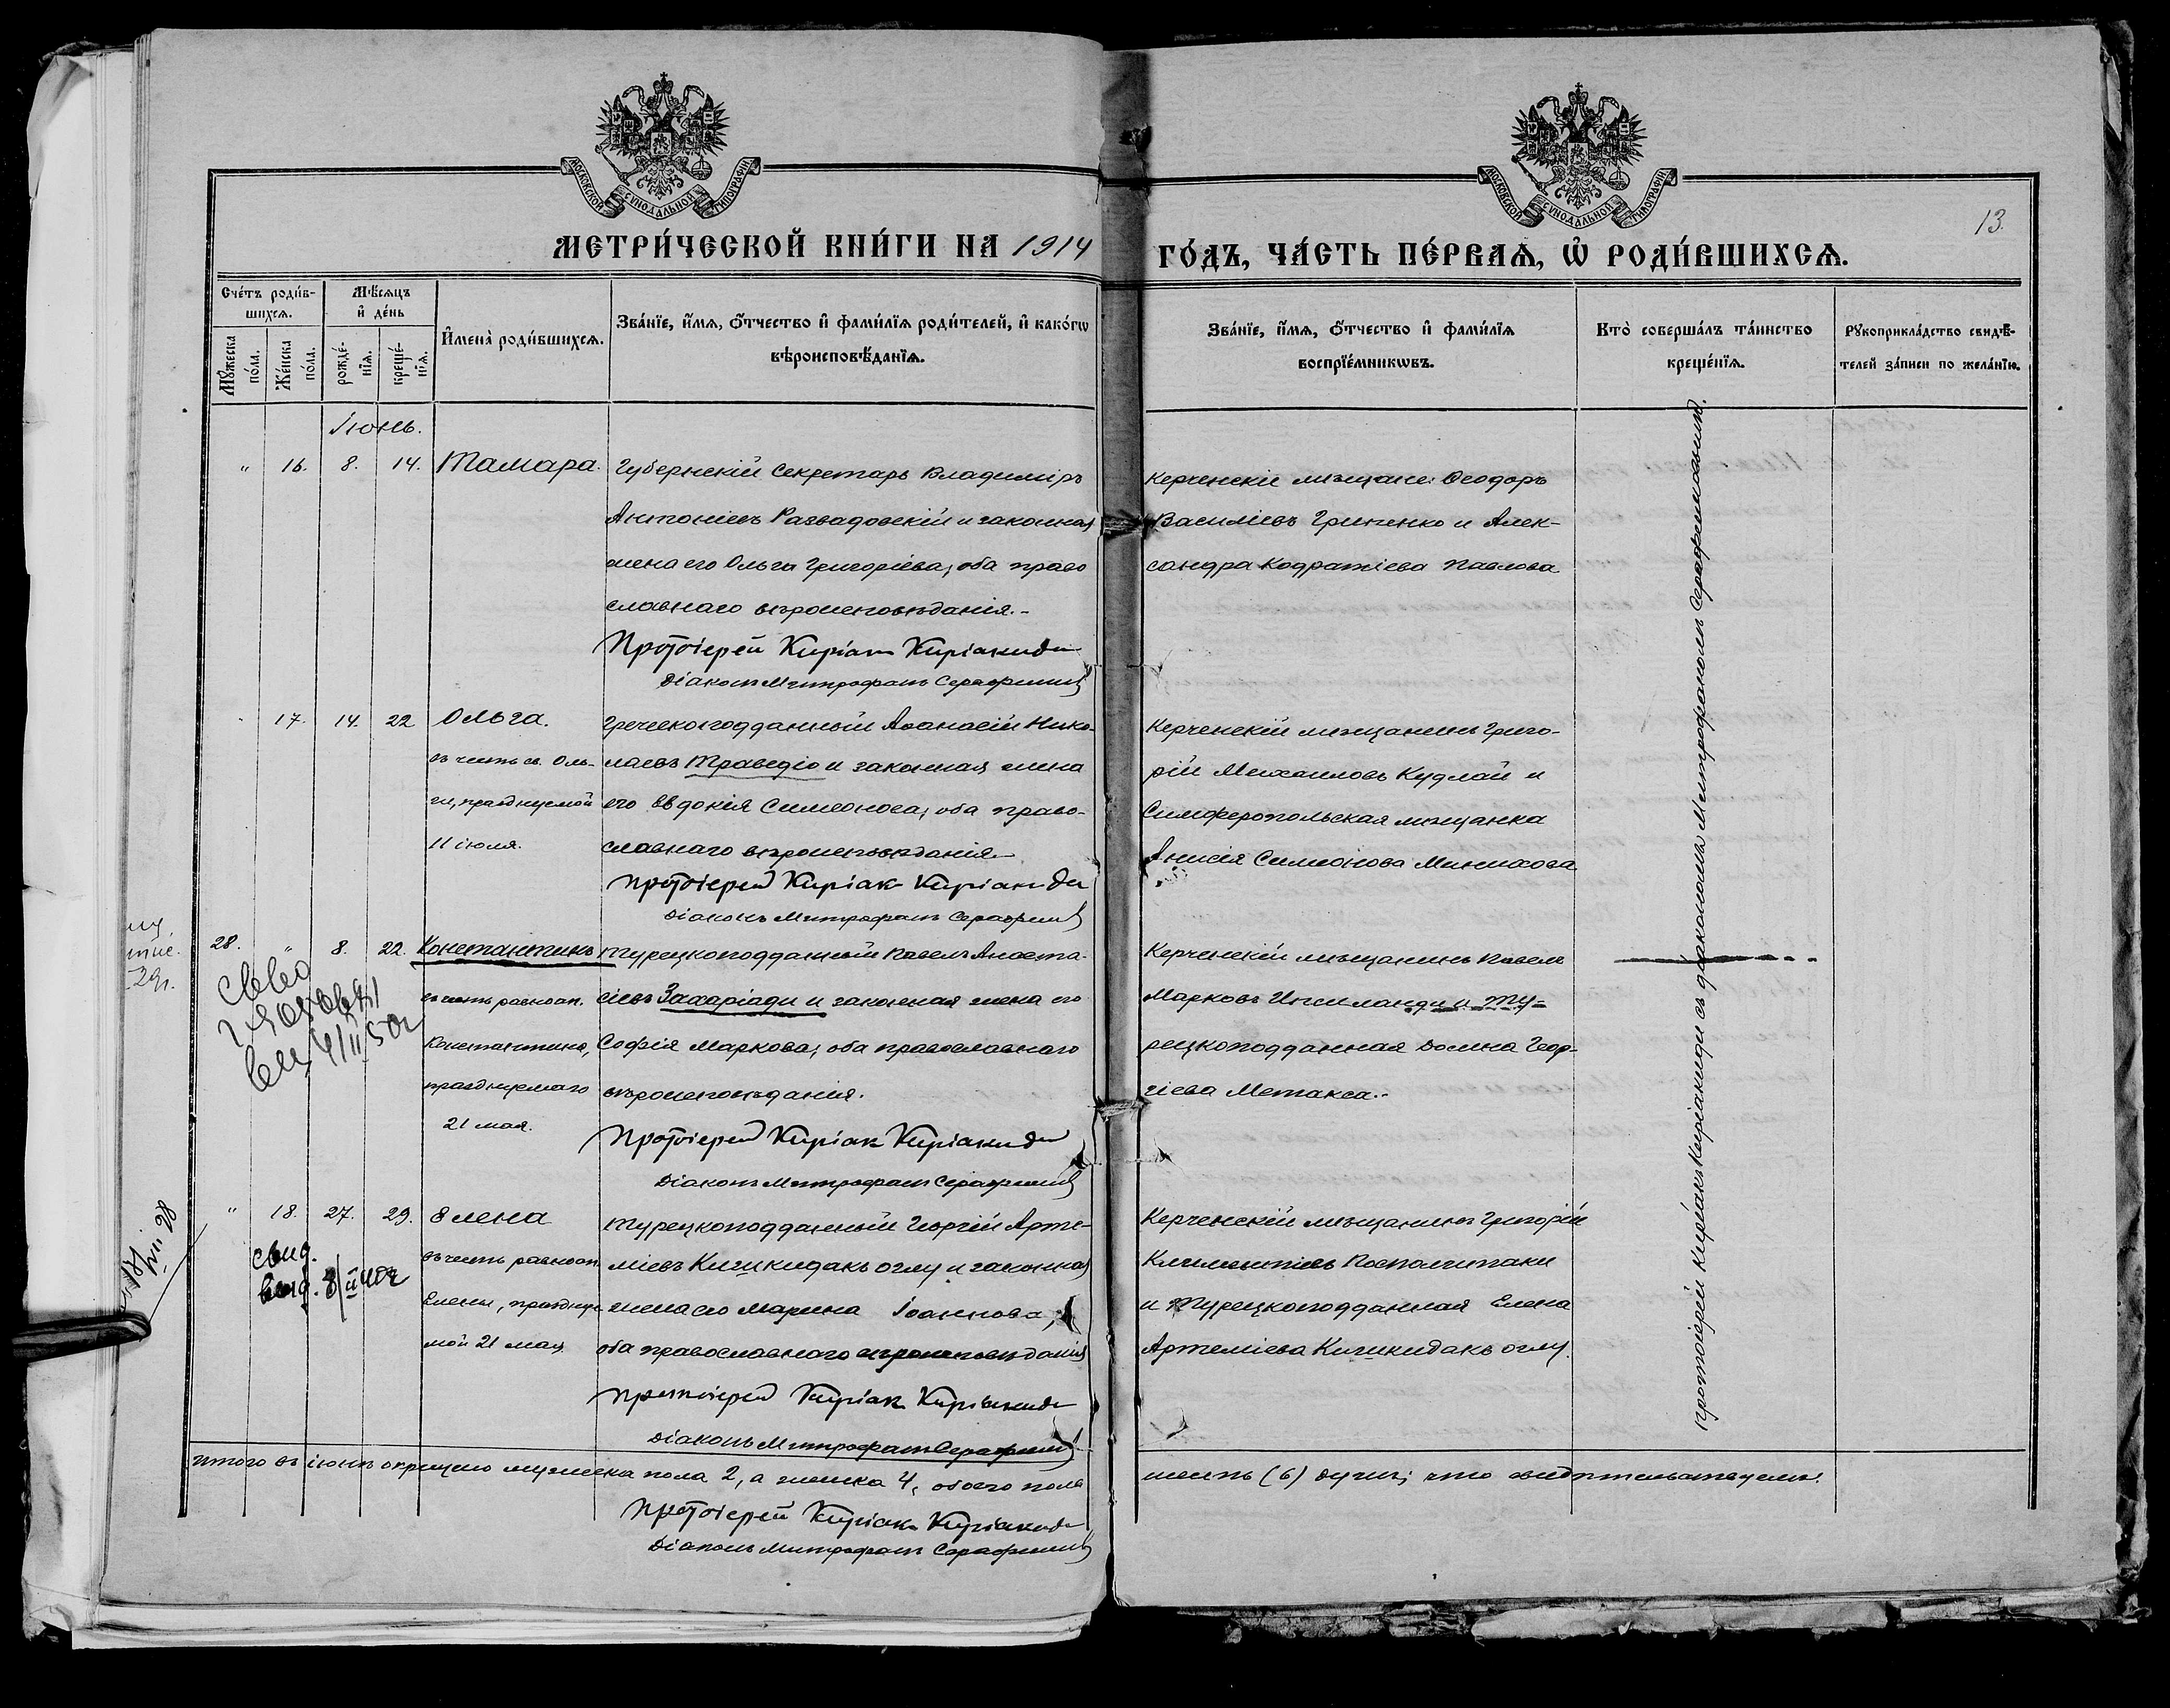 МОСКОВСКОЙ СУНОДАЛЬНОЙ ТИПОГРАФІИ
МОСКОВСКОЙ СУНОДАЛЬНОЙ ТИПОГРАФІИ
13.
МЕТРИ́ЧЕСКОЙ КНИ́ГИ НА 1914
ГО́ДЪ, ЧА́СТЬ ПЕ́РВАѦ, Ѡ҆ РОДИ́ВШИХСѦ.
Сче́тъ роди́в-
шихсѧ.
Мꙋ́жеска
по́ла.
Же́нска
по́ла.
Мѣ́сѧцъ
и҆ де́нь
рожде́-
нїѧ.
креще́-
нїѧ.
И҆мена̀ роди́вшихсѧ.
Зва́нїе, и҆́мѧ, ѻ҆́тчество и҆ фами́лїѧ роди́телей, и҆ како́гѡ
вѣроисповѣ́данїѧ.
Зва́нїе, и҆́мѧ, ѻ҆́тчество и҆ фами́лїѧ
воспрїе́мникѡвъ.
Кто̀ соверша́лъ та́инство
креще́нїѧ.
Рꙋкоприкла́дство свидѣ́-
телей за́писи по жела́нїю.
Іюнь.
" 16. 8. 14. Тамара.
Губернскій Секретарь Владиміръ
Антоніевъ Развадовскій и законная
жена его Ольга Григоріева, оба право
славнаго вѣроисповѣданія.-
Протоіерей Киріак Киріакиди
Діаконъ Митрофанъ Серафимов
Керченскіе мѣщане: Ѳеодоръ
Василіевъ Гриненко и Алек-
сандра Кодратіева Павлова
17. 14. 22 Ольга.
въ честь св. Оль-
ги, празднуемой
11 іюля.
Греческоподданный Аѳанасій Нико-
лаевъ Траведіо и законная жена
его Евдокія Симеонова, оба право-
славнаго вѣроисповѣданія
Протоіерей Киріак Киріакиди
Діаконъ Митрофанъ Серафимов
Керченскій мѣщанинъ Григо-
рій Михаиловъ Кудлай и
Симферопольская мѣщанка
Анисія Симеонова Минихова
29г.
28. " 8. 22. Константинъ
въ честь равноап.
Константина,
празднуемаго
21 мая.
Турецкоподданный Павелъ Анаста-
сіевъ Захаріади и законная жена его
Софія Маркова, оба православнаго
вѣроисповѣданія.
Протоіерей Киріак Киріакиди
Діаконъ Митрофанъ Серафимов
Керченскій мѣщанинъ Павелъ
Марковъ и Ту-
рецкоподданная Домна Геор-
гіева Метакса.-
" 18. 27. 29. Елена
въ честь равноап.
Елены, праздну-
мой 21 мая
свид.
выд. 8/II
Турецкоподданный Георгій Арте-
міевъ Кичикидакъ оглу и законная
жена его Марина Іоаннова,
оба православнаго вѣроисповѣданія
Протоіерей Киріак Киріакиди
Діаконъ Митрофанъ Серафимов
Керченскій мѣщанинъ Григорій
Климентіевъ Посполитаки
и Турецкоподданная Елена
Артеміева Кичикидакъ оглу.
Протоіерей Киріакъ Киріакиди съ діакономъ Митрофаномъ Серафимовымъ.
Итого въ іюнѣ окрещено мужеска пола 2, а женска 4, обоего пола
шесть (6) душъ; что свидѣтельствуемъ.
Протоіерей Киріак Киріакиди
Діаконъ Митрофанъ Серафимов